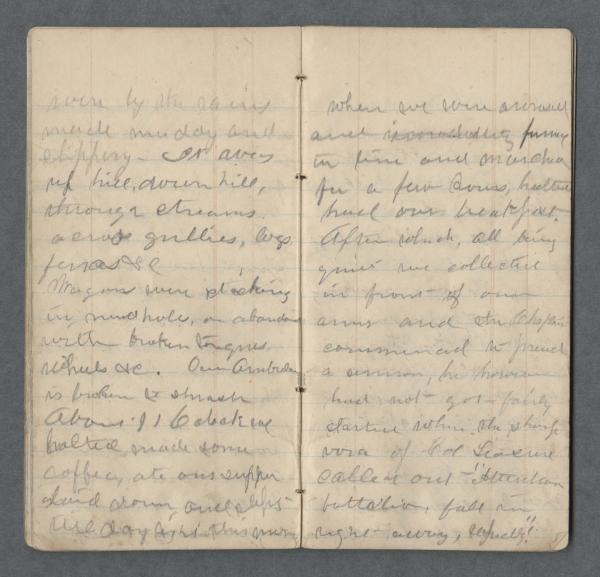 were by the rains
made muddy and
slippery - It was
up hill, down hill,
through streams.
across gullies, logs
fences &c
Wagons were sticking
in mud hole, or abandon
with broken tongues
wheels &c. Our Ambulan
is broken to smash
About 6 oclock we
halted made some
coffee, ate our supper
laid down, and slept
till day light this morn
when we were aroused
and immediately
in line and marched
for a few hours, halted
had our breakfast.
After which, all being
quiet we collected
in front of our
arms and the Chaplin
commenced to preach
a sermon, he however
had not got fairly
started when the sharp
voice of Col Leasure
called out - "Attention
battalion, fall in
right away,